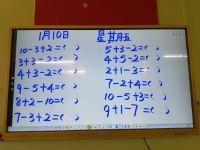 1月10日 星期五
10-3+2=( ) 5+3-2=( )
3+3-2=( ) 4+5-2=( )
4+3-2=( ) 2+1-3=( )
9-5+4=( ) 7-2+4=( )
8+2-10=( ) 10-5+3=( )
7-3+2=( ) 9+1-7=( )